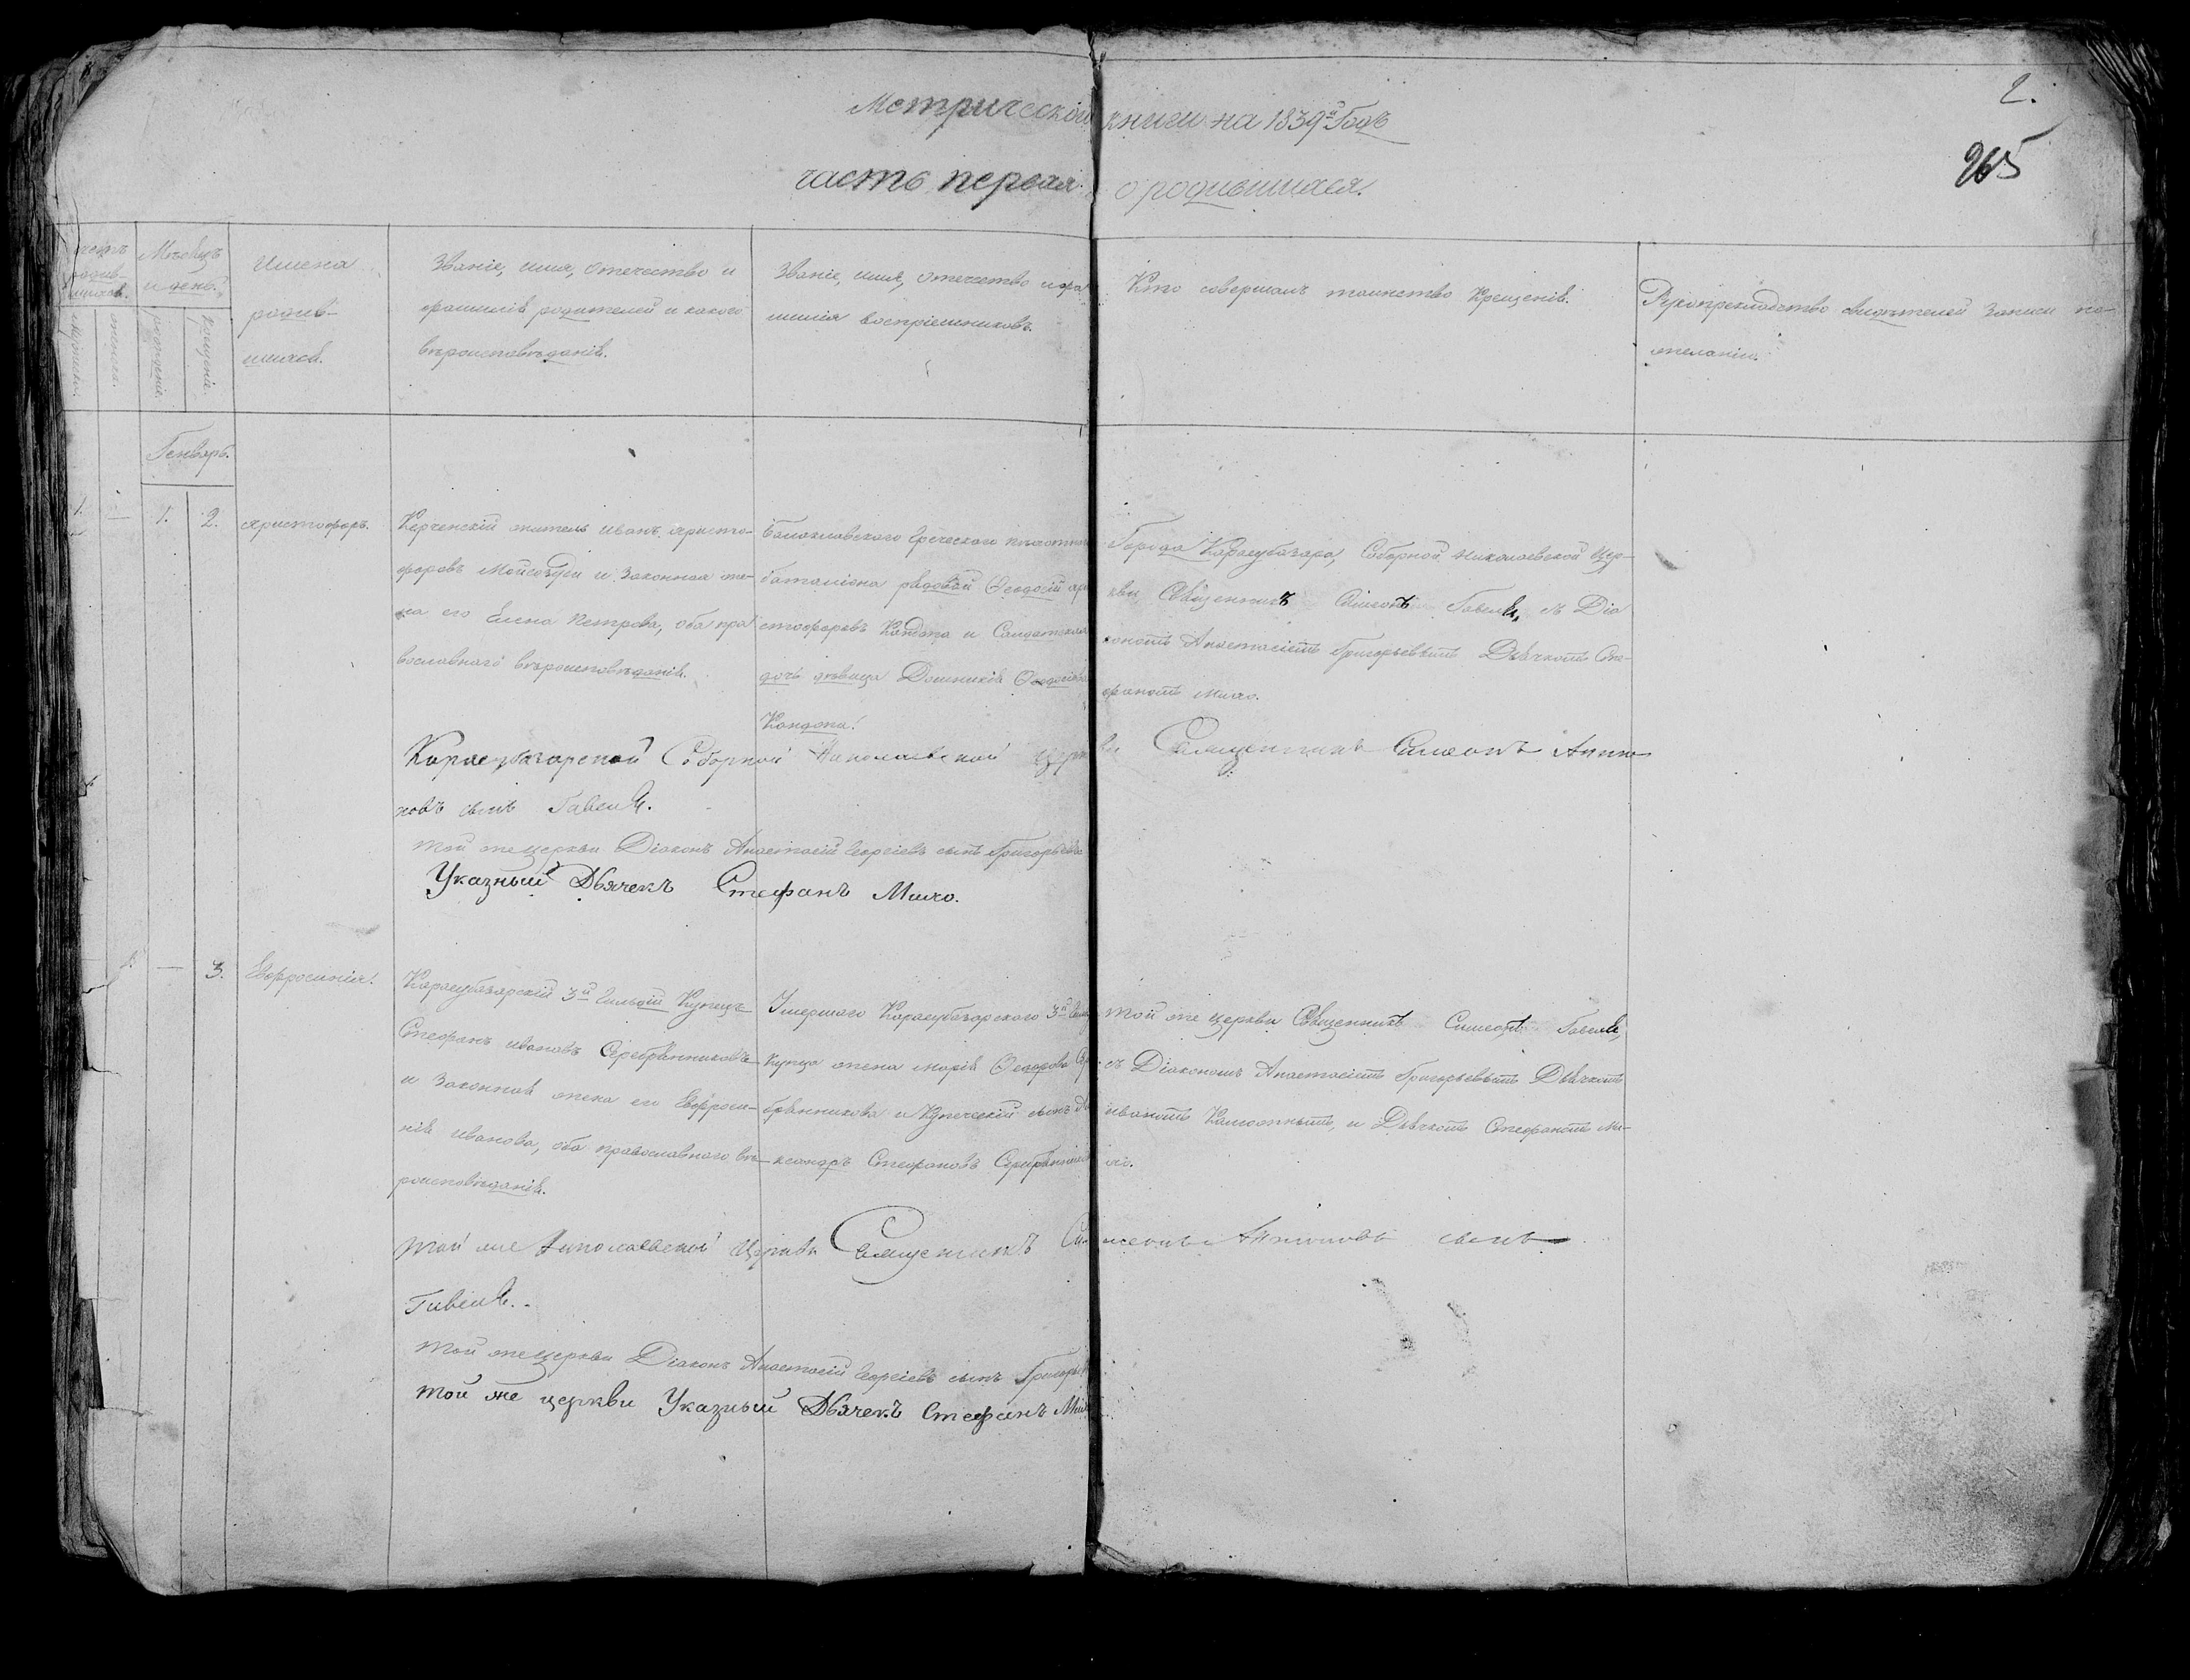 2.
265
Метрической книги на 1839й Годъ
часть первая о родившихся.
Счетъ родив-
шихся.
мужеска.
женска.
Мѣсяцъ
и день.
рожденія.
крещенія.
Имена
родив-
шихся.
Званіе, имя, отечество и
фамилія родителей и какого
вѣроисповѣданія.
Званіе, имя, отечество и фа
милія воспріемниковъ.
Кто совершалъ таинство Крещенія.
Рукоприкладство свидѣтелей записи по-
желанію.
Генварь.
1. — 1. 2.
Христофоръ.
Керченскій житель Иванъ Христо-
форовъ и Законная же-
на его Елена Петрова, оба пра
вославнаго вѣроисповѣданія.
Балаклавскаго Греческаго пѣхотнаго
баталіона рядовой Ѳеодосій Хри
стофоровъ Кандопа и Салдатская
дочь дѣвица Ѳеодосіева
Кандопа.
Города Карасубазара, Соборной Николаевской Цер-
кви Священникъ Симеонъ съ Діа
кономъ Анастасіемъ Григорьевымъ Дьячкомъ Сте-
фаномъ Михо.
Карасубазарской Соборной Николаевской Церкви Священникъ Симеонъ Антно
новъ сынъ
Той же церкви Діаконъ Анастасій Георгіевъ сынъ Григорьевъ
Указный Дьячекъ Стефанъ Михо.
1. — 3.
Евфросинія.
Карасубазарскій 3й Гильдіи Купецъ
Стефанъ Ивановъ Серебрянниковъ
и Законная жена его Евфроси-
нія Иванова, оба православнаго вѣ-
роисповѣданія.
Умершаго Карасубазарскаго 3й
Купца жена Марія Ѳеодорова Се
брянникова и Купеческій сынъ
ксандръ Стефановъ Серебрянник
Той же церкви Священникъ Симеонъ
съ Діакономъ Анастасіемъ Григорьевымъ Дьячкомъ
Иваномъ и Дьячкомъ Стефаномъ Ми-
хо.
Той же Николаевской Церкви Священникъ Симеонъ Антоновъ сынъ
Той же церкви Діаконъ Анастасій Георгіевъ сынъ Григорьев
Той же церкви Указный Дьячекъ Стефанъ Михо